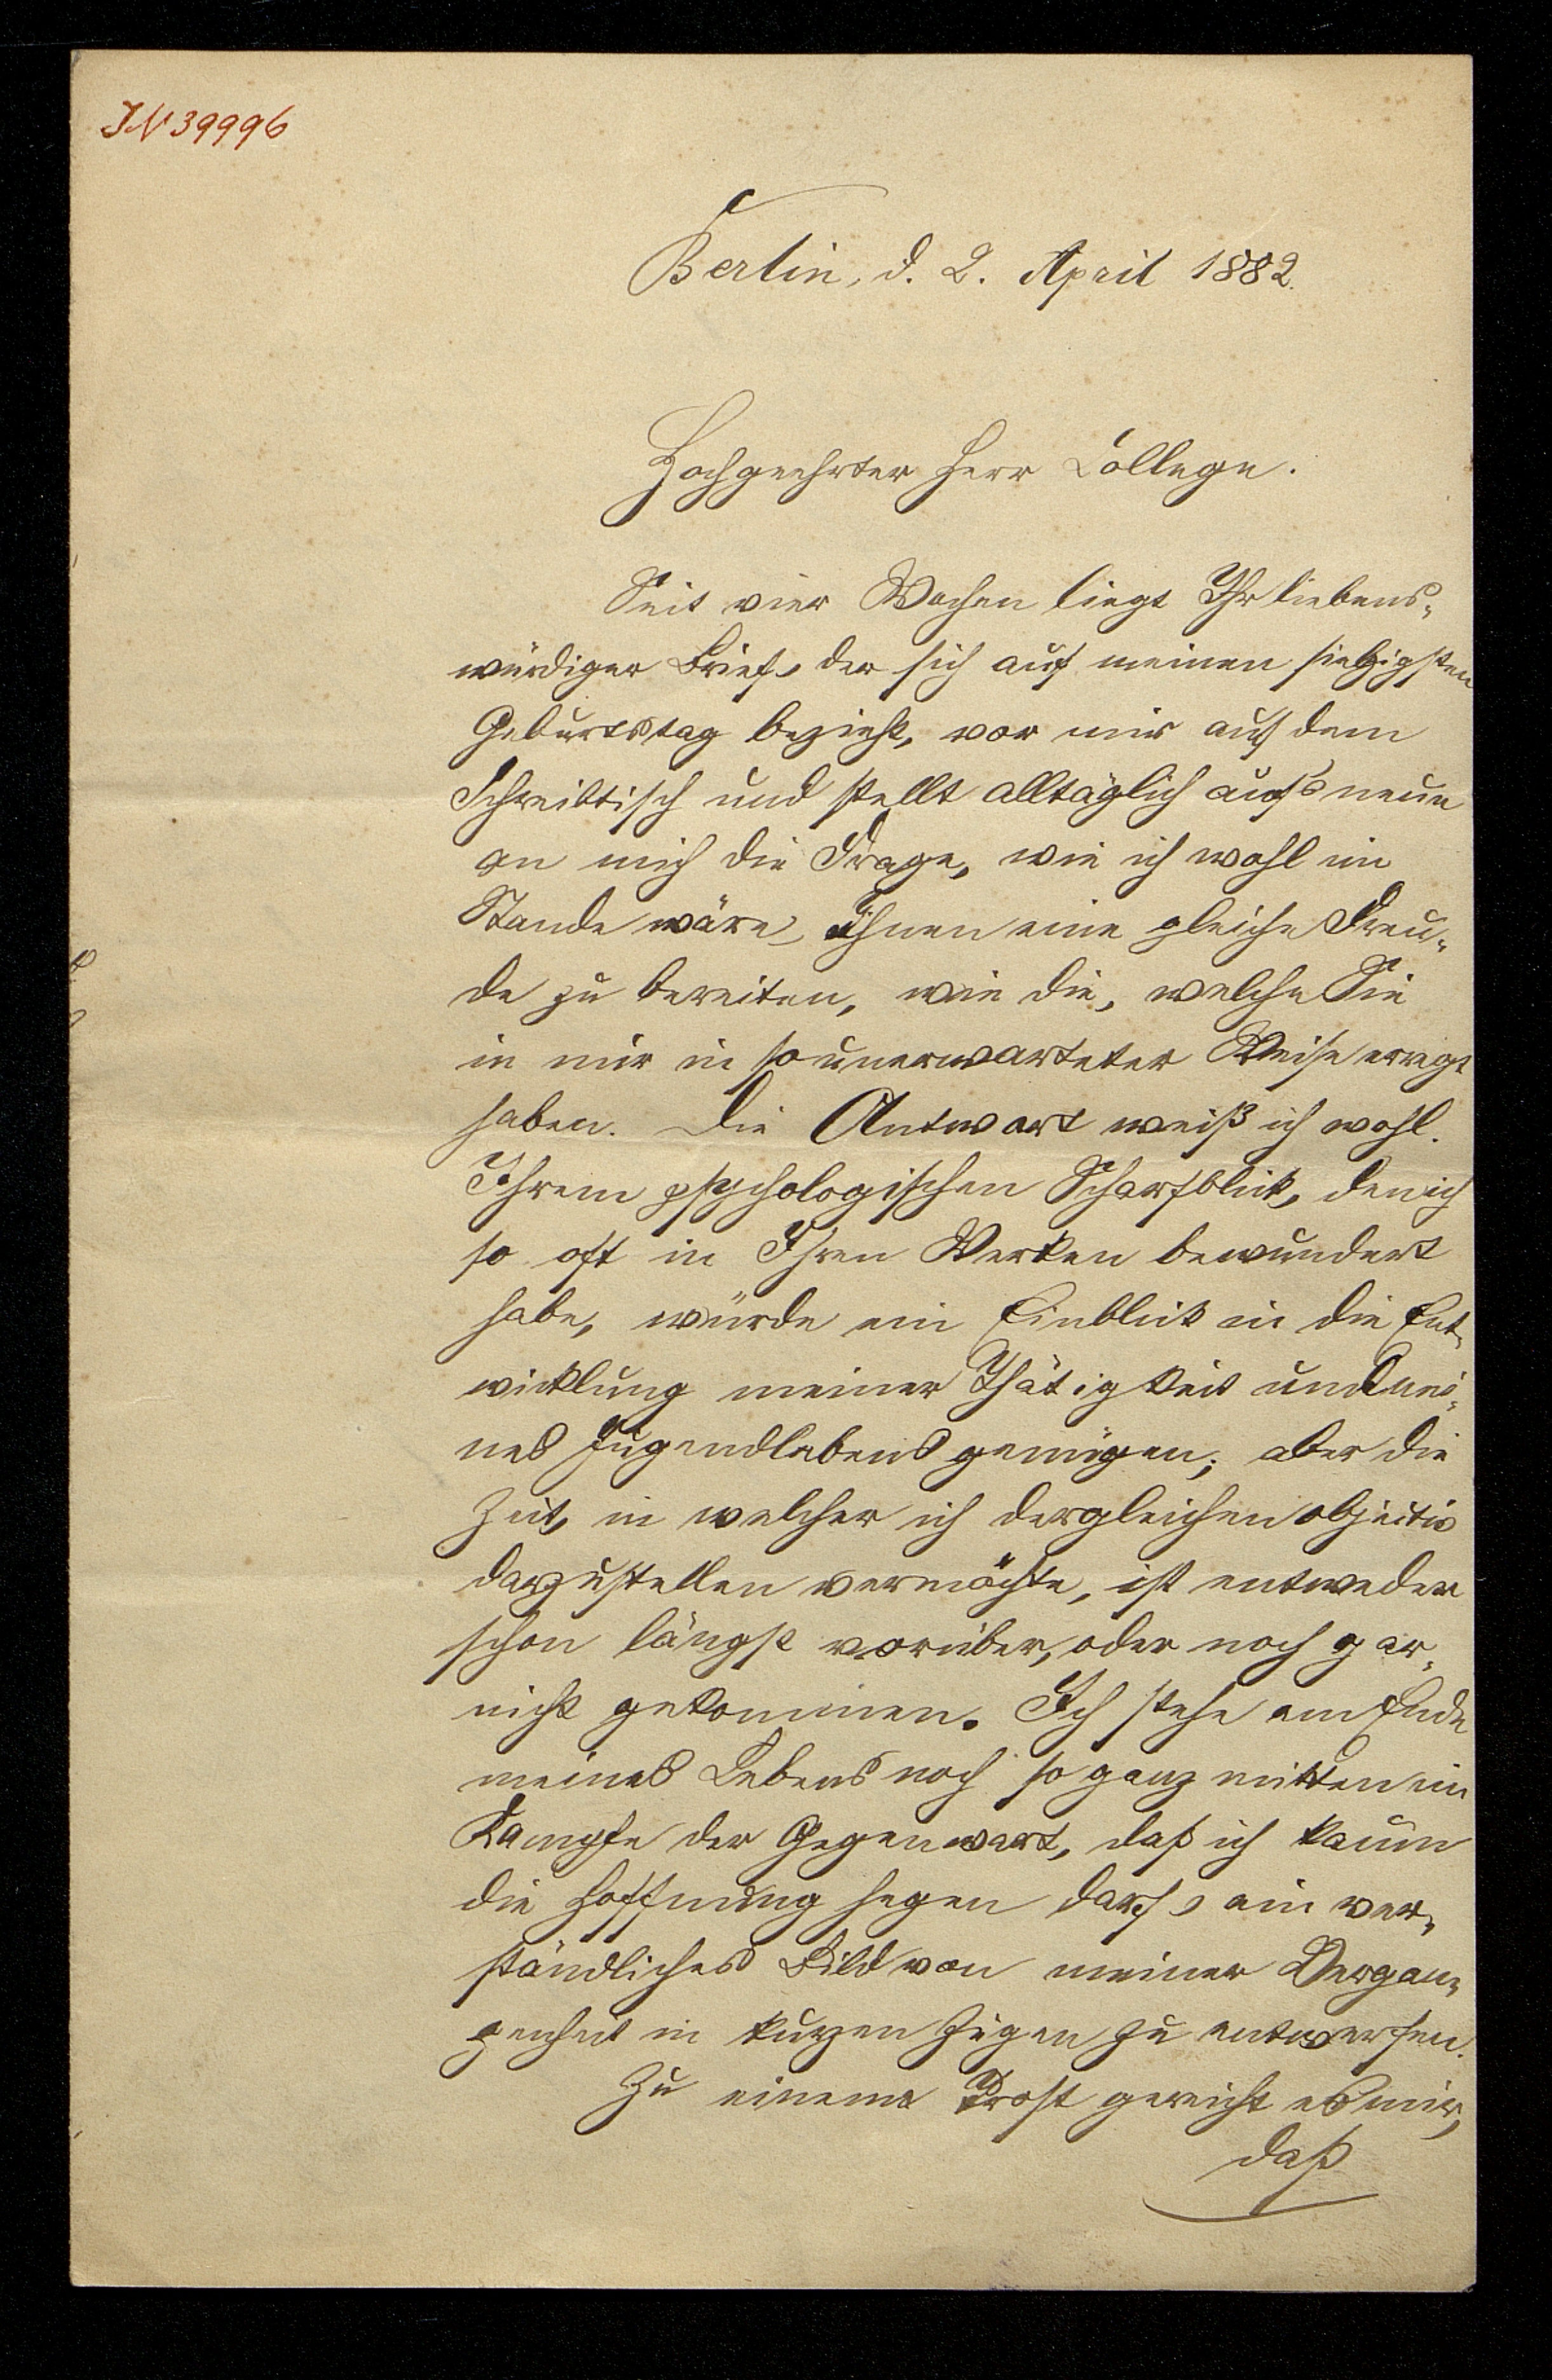 JN 39996
Berlin, d. 2. April 1882.
Hochgeehrter Herr College.
Seit vier Wochen liegt Ihr liebens-
würdiger Brief, der sich auf meinen siebzigsten
Geburtstag bezieht, vor mir auf dem
Schreibtisch und stellt alltäglich auf's neue
an mich die Frage, wie ich wohl im
Stande wäre, Ihnen eine gleiche Freu-
de zu bereiten, wie die, welche Sie
in mir in so unerwarteter Weise erregt
haben. Die Antwort weiß ich wohl.
Ihrem psychologischen Scharfblick, den ich
so oft in Ihren Werken bewundert
habe, würde ein Einblick in die Ent-
wicklung meiner Thätigkeit und mei-
nes Jugendlebens genügen; aber die
Zeit, in welcher ich dergleichen objectiv
darzustellen vermöchte, ist entweder
schon längst vorüber, oder noch gar
nicht gekommen. Ich stehe am Ende
meines Lebens noch so ganz mitten im
Kampfe der Gegenwart, daß ich kaum
die Hoffnung hegen darf, ein ver-
ständliches Bild von meiner Vergan-
genheit in kurzen Zügen zu entwerfen.
Zu einem Trost gereicht es mir,
daß